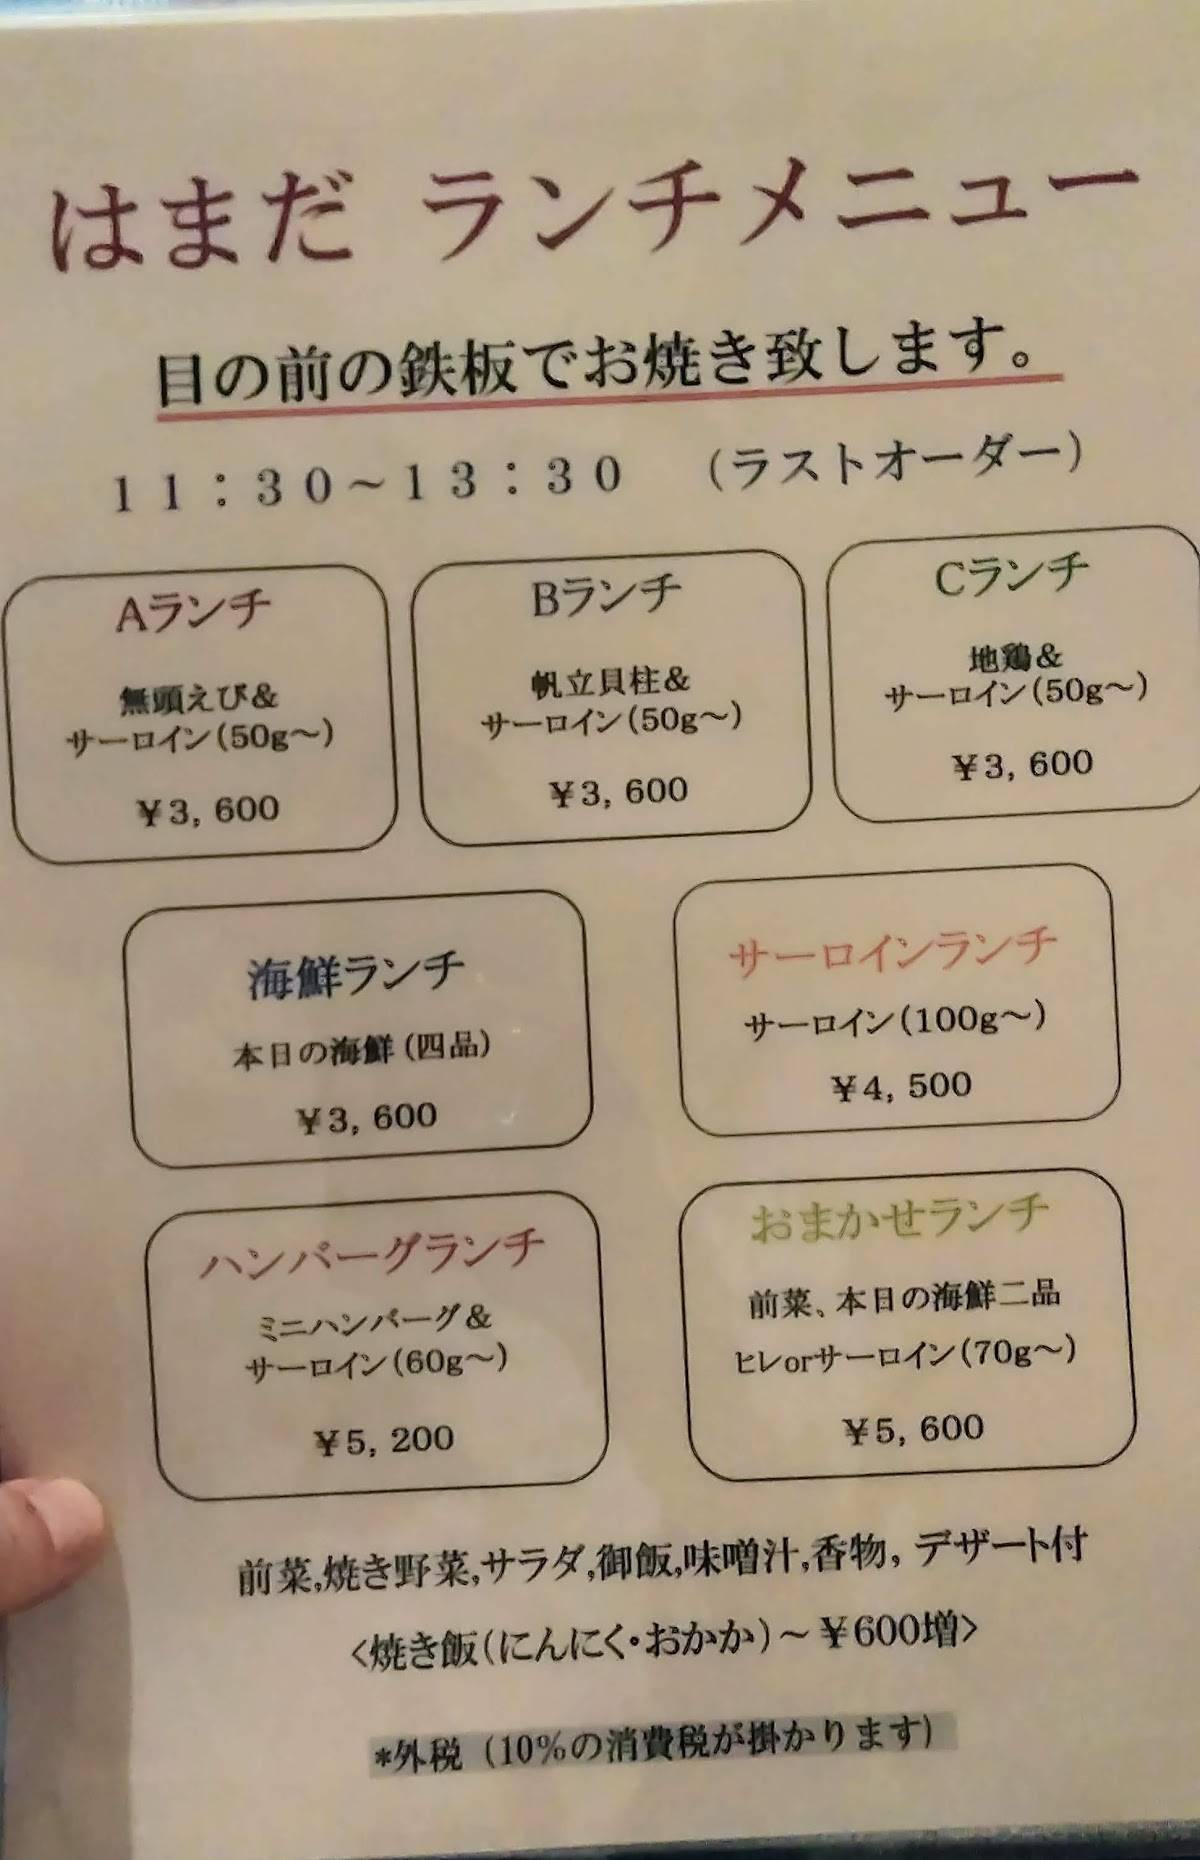 はまだ ランチメニュー
目の前の鉄板でお焼き致します。
11：30～13：30 （ラストオーダー）
Aランチ
無頭えび＆
サーロイン（50g～）
￥3，600
Bランチ
帆立貝柱＆
サーロイン（50g～）
￥3，600
Cランチ
地鶏＆
サーロイン（50g～）
￥3，600
海鮮ランチ
本日の海鮮（四品）
￥3，600
サーロインランチ
サーロイン（100g～）
￥4，500
ハンバーグランチ
ミニハンバーグ＆
サーロイン（60g～）
￥5，200
おまかせランチ
前菜、本日の海鮮二品
ヒレorサーロイン（70g～）
￥5，600
前菜,焼き野菜,サラダ,御飯,味噌汁,香物, デザート付
<焼き飯（にんにく・おかか）～￥600増>
*外税（10％の消費税が掛かります）